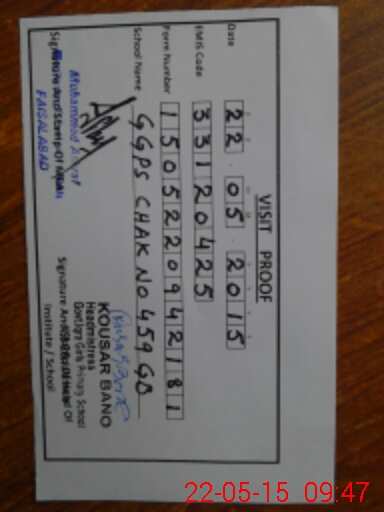 VISIT PROOF
Date 22 . 05 . 2015
EMIS Code 33120425
Form Number 1505220942181
School Name GGPS CHAK NO 459 GB
Muhammad
FAISALABAD
Signature And Stamp Of
KOUSAR BANO
Headmistress
Govt.Iqra Girls Primary School
Signature And
Of
Institute / School
22-05-15 09:47